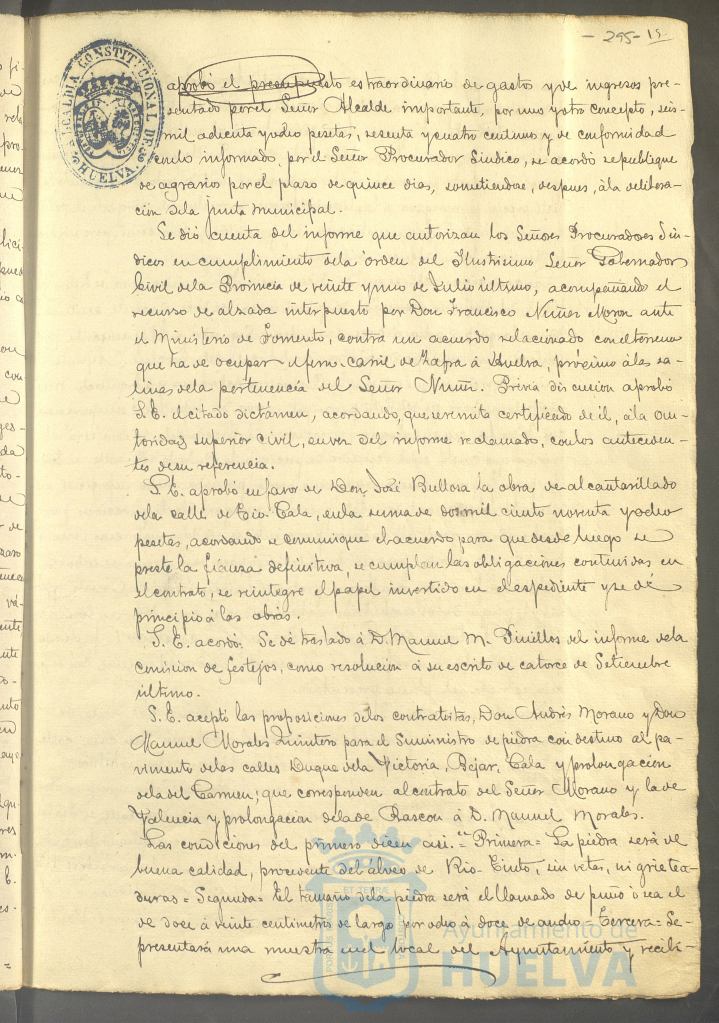 -295- 15
ALCALDIA CONSTITUCIONAL DE HUELVA
aprobó el presupuesto extraordinario de gastos y de ingresos pre-
sentado por el Señor Alcalde importante, por uno y otro concepto, seis-
mil ochenta y ocho pesetas, sesenta y cuatro centimos y de conformidad
con lo informado, por el Señor Procurador Sindico, se acordó se publique
de agravios por el plazo de quince dias, sometiendose, despues, á la delibera-
cion de la Junta Municipal.
Se dió cuenta del informe que autorizan los Señores Procuradores Sin-
dicos en cumplimiento de la orden del Ilustrisimo Señor Gobernador
Civil de la Provincia de veinte y uno de Julio último, acompañando el
recurso de alzada interpuesto por Don Francisco Nuñez Moron ante
el Ministerio de Fomento, contra un acuerdo relacionado con el terreno
que ha de ocupar el ferro-carril de Zafra á Huelva, próximo á las sa-
linas de la pertenencia del Señor Nuñez. Prévia discucion aprobó
S.E. el citado dictámen, acordando, que se remita certificado de él, á la au-
toridad superior civil, en vez del informe reclamado, con los anteceden-
tes de su referencia.
S.E. aprobó en favor de Don José Bullosa la obra de alcantarillado
de la calle de Tio-Cala, en la suma de dos mil ciento noventa y ocho
pesetas, acordando se comunique el acuerdo para que desde luego se
preste la fianza definitiva, se cumplan las obligaciones contenidas en
el contrato, se reintegre el papel invertido en el espediente y se dé
principio á las obras.
S.E. acordó. Se dé traslado á D. Manuel M. Pinillos del informe de la
comision de festejos, como resolucion á su escrito de catorce de Setiembre
último.
S.E. aceptó las proposiciones de los contratistas, Don Andrés Morano y Don
Manuel Morales Quintero para el suministro de piedra con destino al pa-
vimento de las calles Duque de la Victoria, Bejar, Cala y prolongacion
de la del Carmen, que corresponden al contrato del Señor Morano y la de
Valencia y prolongacion de la de Rascon á D. Manuel Morales.
Las condiciones del primero dicen asi. "Primera= La piedra será de
buena calidad, procedente del alveo de Rio-Tinto, sin vetas, ni grietea-
duras= Segunda= El tamaño de la piedra será el llamado de puño ó sea el
de doce á veinte centimetros de largo por ocho á doce de ancho= Tercera= Se
presentará una muestra en el local del Ayuntamiento y recibi-
Ayuntamiento de
HUELVA